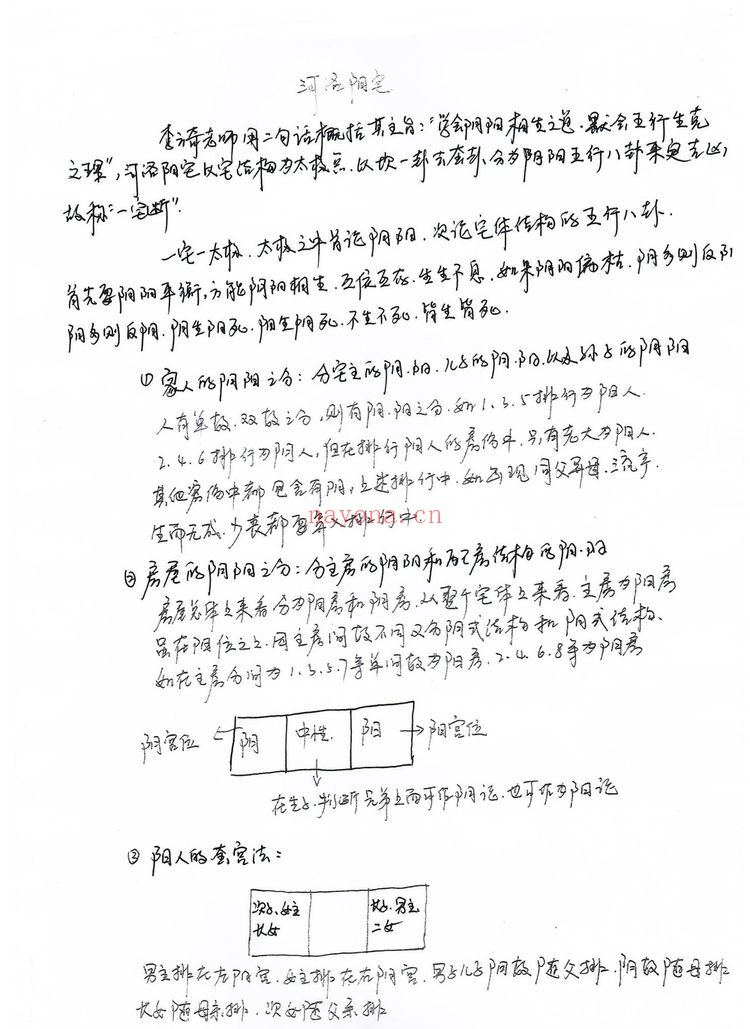 河洛阳宅
李老师用二句话概括其主旨："学会阴阳相生之道.默会五行生克
之理",河洛阳宅以宅结构为太极点.以坎一卦去套卦.分为阴阳五行八卦来定吉凶
故称"一宅断".
一宅一太极.太极之外首论阴阳.次论宅体结构的五行八卦.
首先要阴阳平衡,方能阴阳相生.互位互存.生生不息.如果阴阳偏枯.阴多则反阳
阳多则反阴.阴生阳死.阳生阴死.不生不死.皆生皆死.
① 家人的阴阳之分:分宅主的阴.阳.儿子的阴.阳.以及孙子的阴阳
人有单数.双数之分,则有阴.阳之分.如1.3.5排行为阳人.
2.4.6排行为阴人,但在排行阳人的房份中.只有老大为阳人.
其他房份中都包含有阴,上述排行中.如出现同父异母.流产.
生而无成.少丧都要算入排行中
nayona.cn
② 房屋的阴阳之分:分主房的阴阳和配房结构的阴.阳
房屋总体上来看分为阴房和阳房.从整个宅体上来看.主房为阳房
虽在阳位之上.因主房间数不同又分阴式结构和阳式结构.
如在主房分间为1.3.5.7等单间数为阳房.2.4.6.8等为阴房
阴宫位 阴 中性 阳 阳宫位
在生子.判断兄弟上面可作阴论.也可作为阳论
③ 阳人的套宫法:
次子、女主 长子.男主
长女 二女
男主排在左阳宫.女主排在右阴宫.男子儿子阳数随父排.阴数随母排
长女随母亲排.次女随父亲排